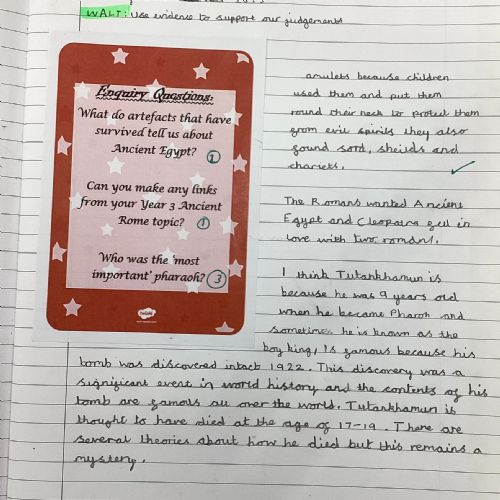 WALT: Use evidence to support our judgements
Enquiry Questions:
What do artefacts that have
survived tell us about
Ancient Egypt? 1
Can you make any links
from your Year 3 Ancient
Rome topic? 1
Who was the 'most
important' pharaoh? 3
twinkl
amulets because children
used them and put them
round their neck to protect them
from evil spirits they also
found sord, sheilds and
chariets.
The Romans wanted Ancient
Egypt and Cleopatra fell in
love with two romans.
I think Tutankhamun is
because he was 9 years old
when he became Pharoh and
sometimes he is known as the
boy king, Is famous because his
tomb was discovered intact 1922. This discovery was a
significant event in world history and the contents of his
tomb are famous all over the world. Tutankhamun is
thought to have died at the age of 17-19. There are
several theories about how he died but this remains a
mystery.